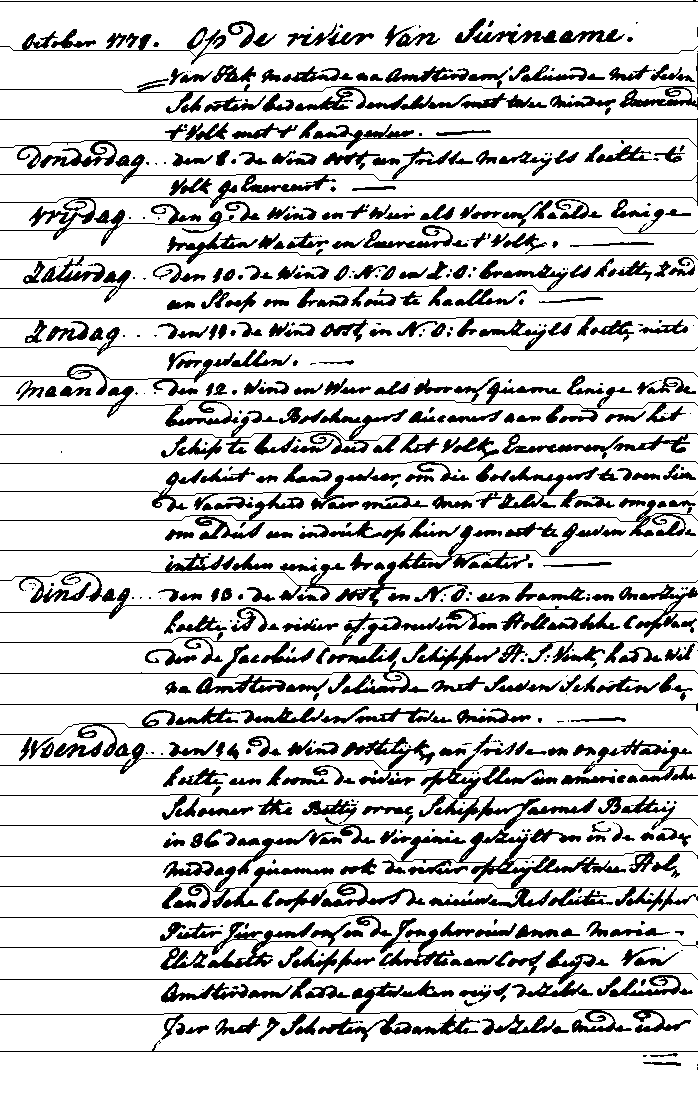 October 1778. Op de rivier Van Suriname.
Van Hek, moetende na Amsterdam, Salueerde met Seven
Schooten bedankte denselven met twee minder, Exerceerde
t' Volk met t' handgeweer.
Donderdag... den 8. de Wind Oost, en frisse marzeijls koelte t'
Volk geExerceert.
Vrijdag... den 9. de Wind en t' Weer als Vooren, haalde Eenige
vraghten Waater, en Exerceerde t' Volk.
Zaturdag... den 10. de Wind O: N: O en Z: O: bramzeijls koelte, Zond
een Sloep om brandhoud te haallen.
Zondag... den 11. de Wind Oost, en N: O: bramzeijls koelte, niets
Voorgevallen.
Maandag... den 12. Wind en Weer als Vooren, Quame Eenige Van de
bevreedigde Boschnegers Aucaners aan boord om het
Schip te besien deed al het Volk Exerceeren, met t'
geschut en handgeweer, om die boschnegers te doen Sien
de Vaardigheid Waer meede men t' Zelve konde omgaan,
om aldus een indruk op hun gemoet te geeven haalde
intusschen eenige vraghten Waater.
Dinsdag... den 13. de Wind Oost, en N: O: een bramz: en marzeijls
koelte, is de rivier afgedreeven den Hollandsche Coopvaer,
der de Jacobus Cornelis, Schipper H: S: Vink, hadde Wil
na Amsterdam, Salueerde met Seeven Schooten be,
dankte denzelven met twee minder.
Woensdag... den 14. de Wind Oostelijk, en frisse en ongestadige
koelte, een koomt de rivier opzeijllen een americaansche
Schoener the Betty orrac, Schipper Jaemes Batteij
in 36 daagen Van de Virginie gezeijlt en in de nade
middagh quamen ook de rivier opzeijllen twee Hol,
landsche Coopvaarders de nieuwe Resolutie Schipper
Pieter Jurgenson, en de Jonghvrouw Anna Maria
Elizabeth Schipper Christiaan Coos, beijde Van
Amsterdam hadde agt weeken reijs, dezelve Salueerde
Ider met 7 Schooten, bedankte dezelve meede ieder